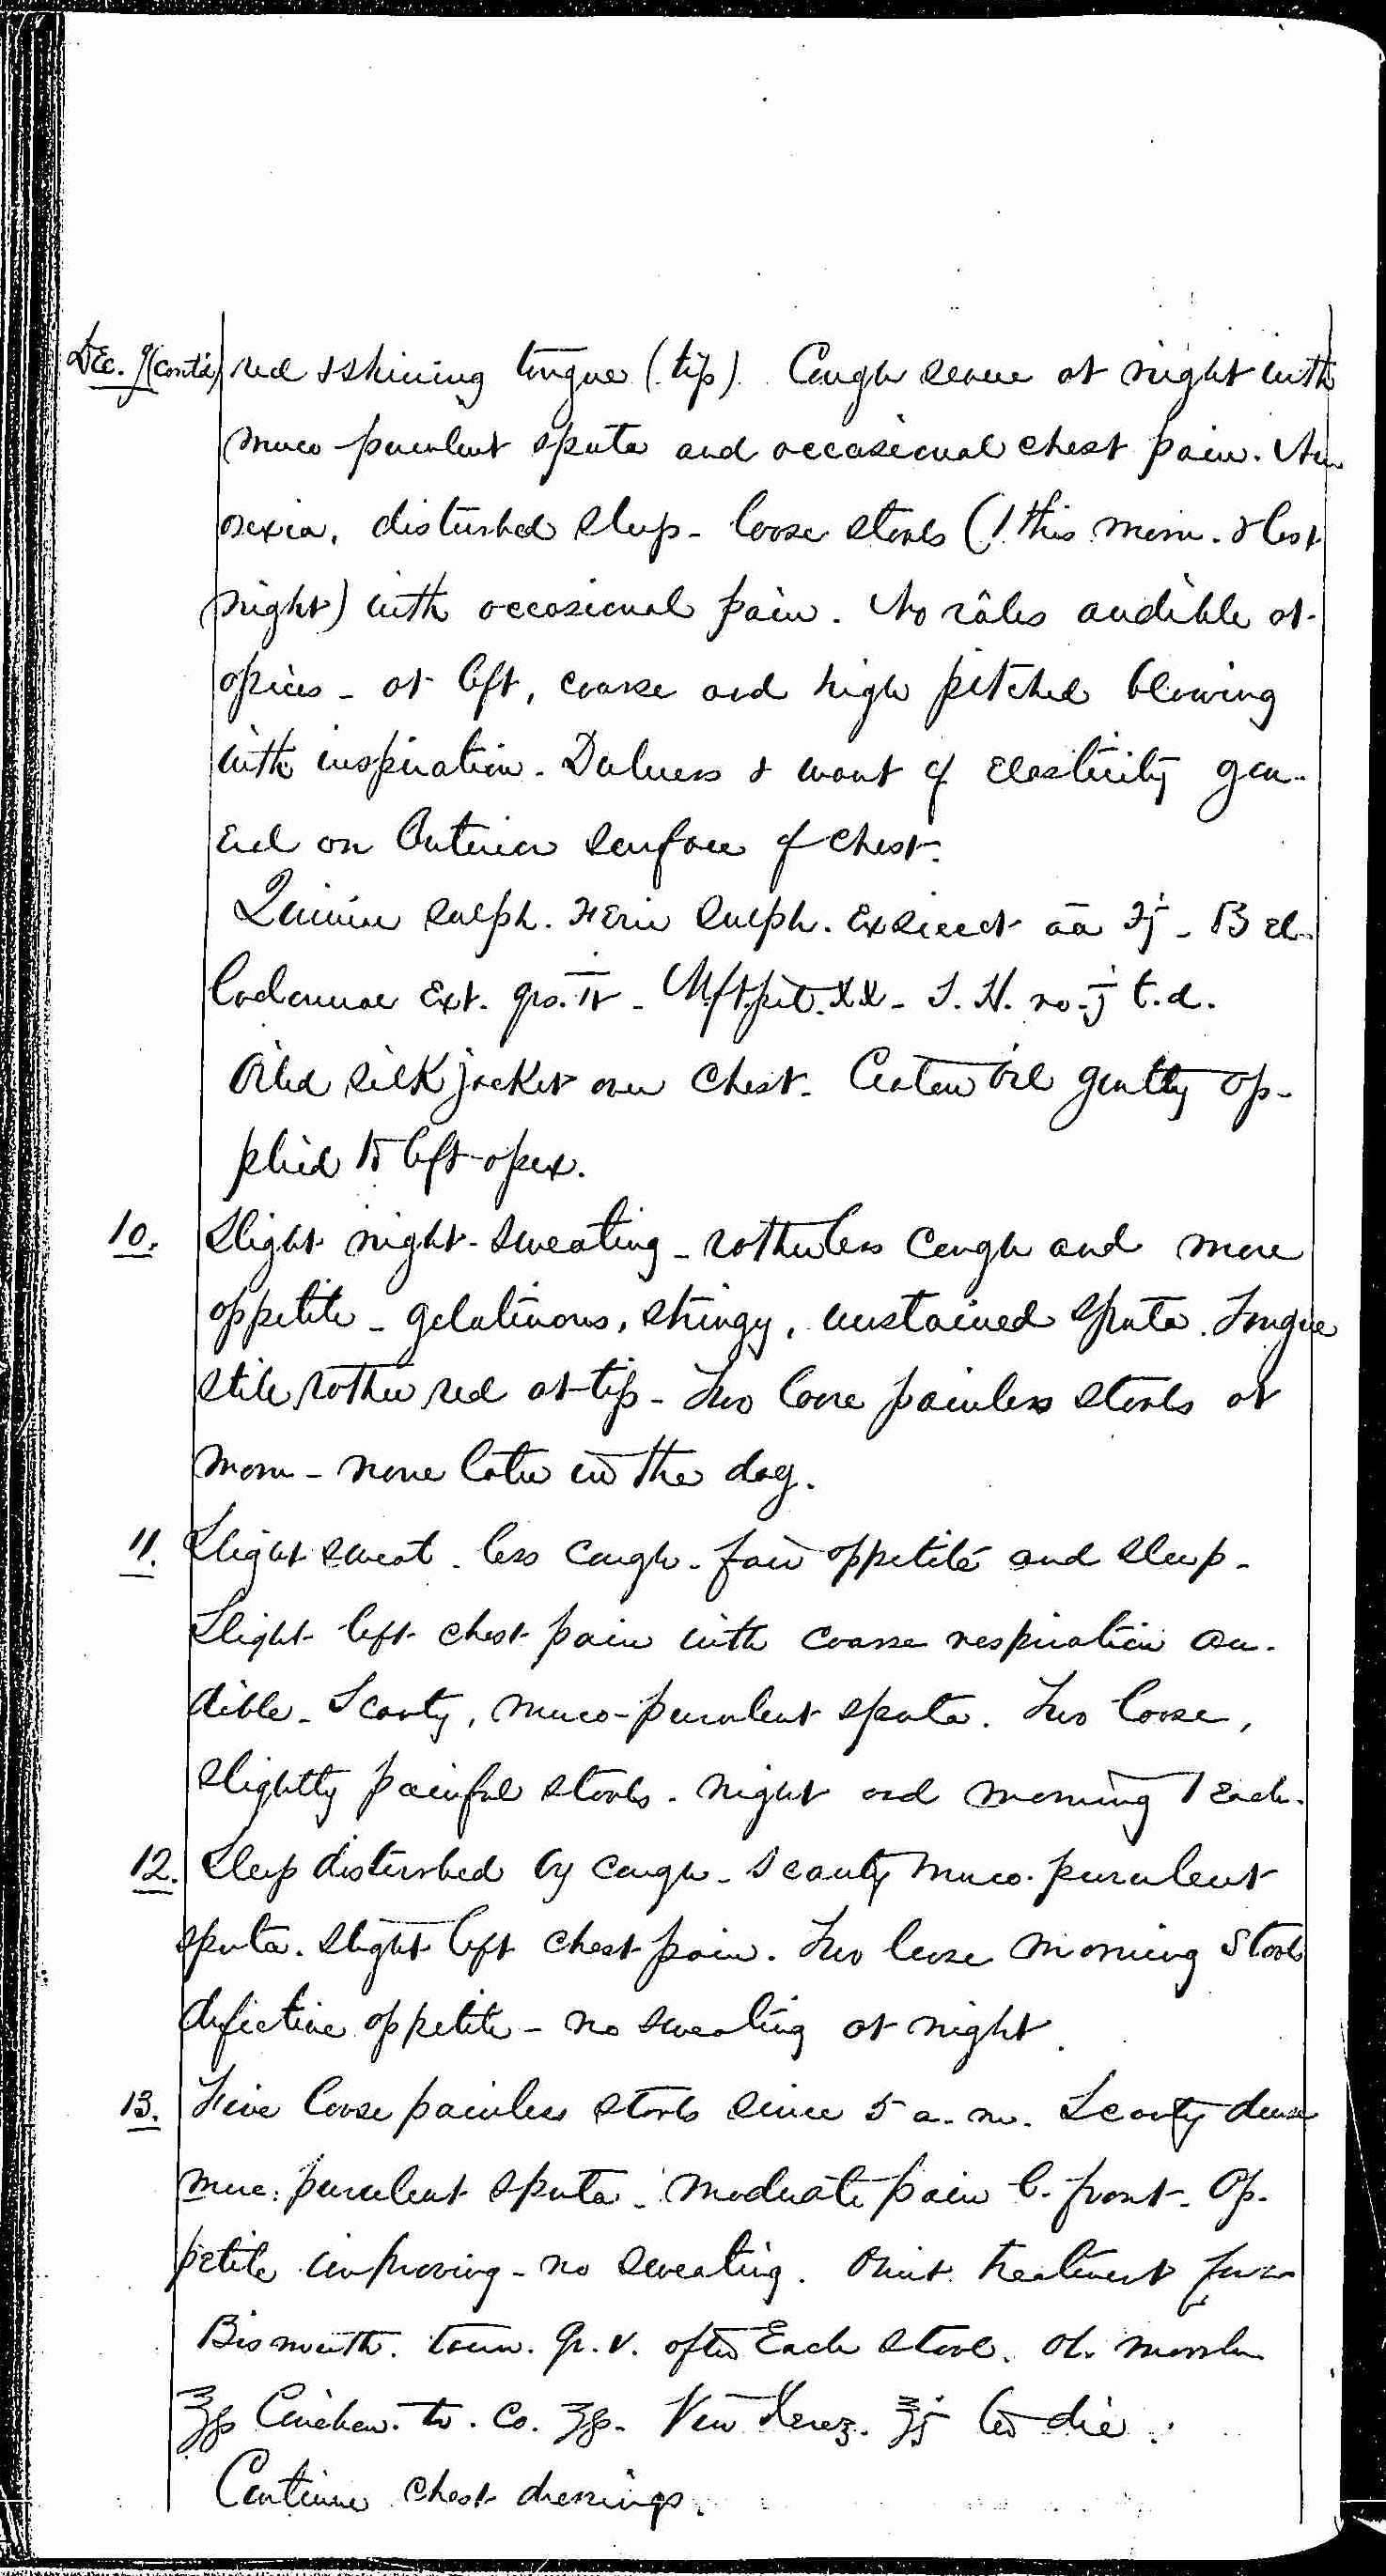 Dec. 9 (cont'd) red & shining tongue (tip). Cough severe at night with
muco-purulent sputa and occasional chest pain. An
orexia, disturbed sleep - loose stools (1 this morn. & last
night) with occasional pain. No râles audible at
apices - at left, coarse and high pitched blowing
with inspiration. Dulness & want of elasticity gen-
eral on anterior surface of chest.
Quiniae Sulph. Ferri Sulph. Exsiccat āā ʒj - Bel-
ladonnae Ext. grs. iv - M ft pil. XX - S. H. no. j t.d.
Oiled silk jacket over chest. Croton oil gently ap-
plied to left apex.
10. Slight night-sweating - rather less cough and more
appetite - gelatinous, stringy, unstained sputa. Tongue
still rather red at tip - Two loose painless stools at
morn - none later in the day.
11. Slight sweat - less cough - fair appetite and sleep -
Slight left chest pain with coarse respiration au-
dible - Scanty, muco-purulent sputa. Two loose,
slightly painful stools - night and morning 1 each.
12. Sleep disturbed by cough - Scanty muco-purulent
sputa. Slight left chest pain. Two loose morning stools
defective appetite - no sweating at night.
13. Five loose painless stools since 5 a.m. Scanty dense
muco-purulent sputa - moderate pain l. front - Ap-
petite improving - no sweating. Omit treatment for
Bismuth. tann. gr. v. after each stool. Ol. morrhu
℥ss Cinchon. tr. Co. ʒss - Vin Xerez. ℥j ter die.
Continue chest dressings.